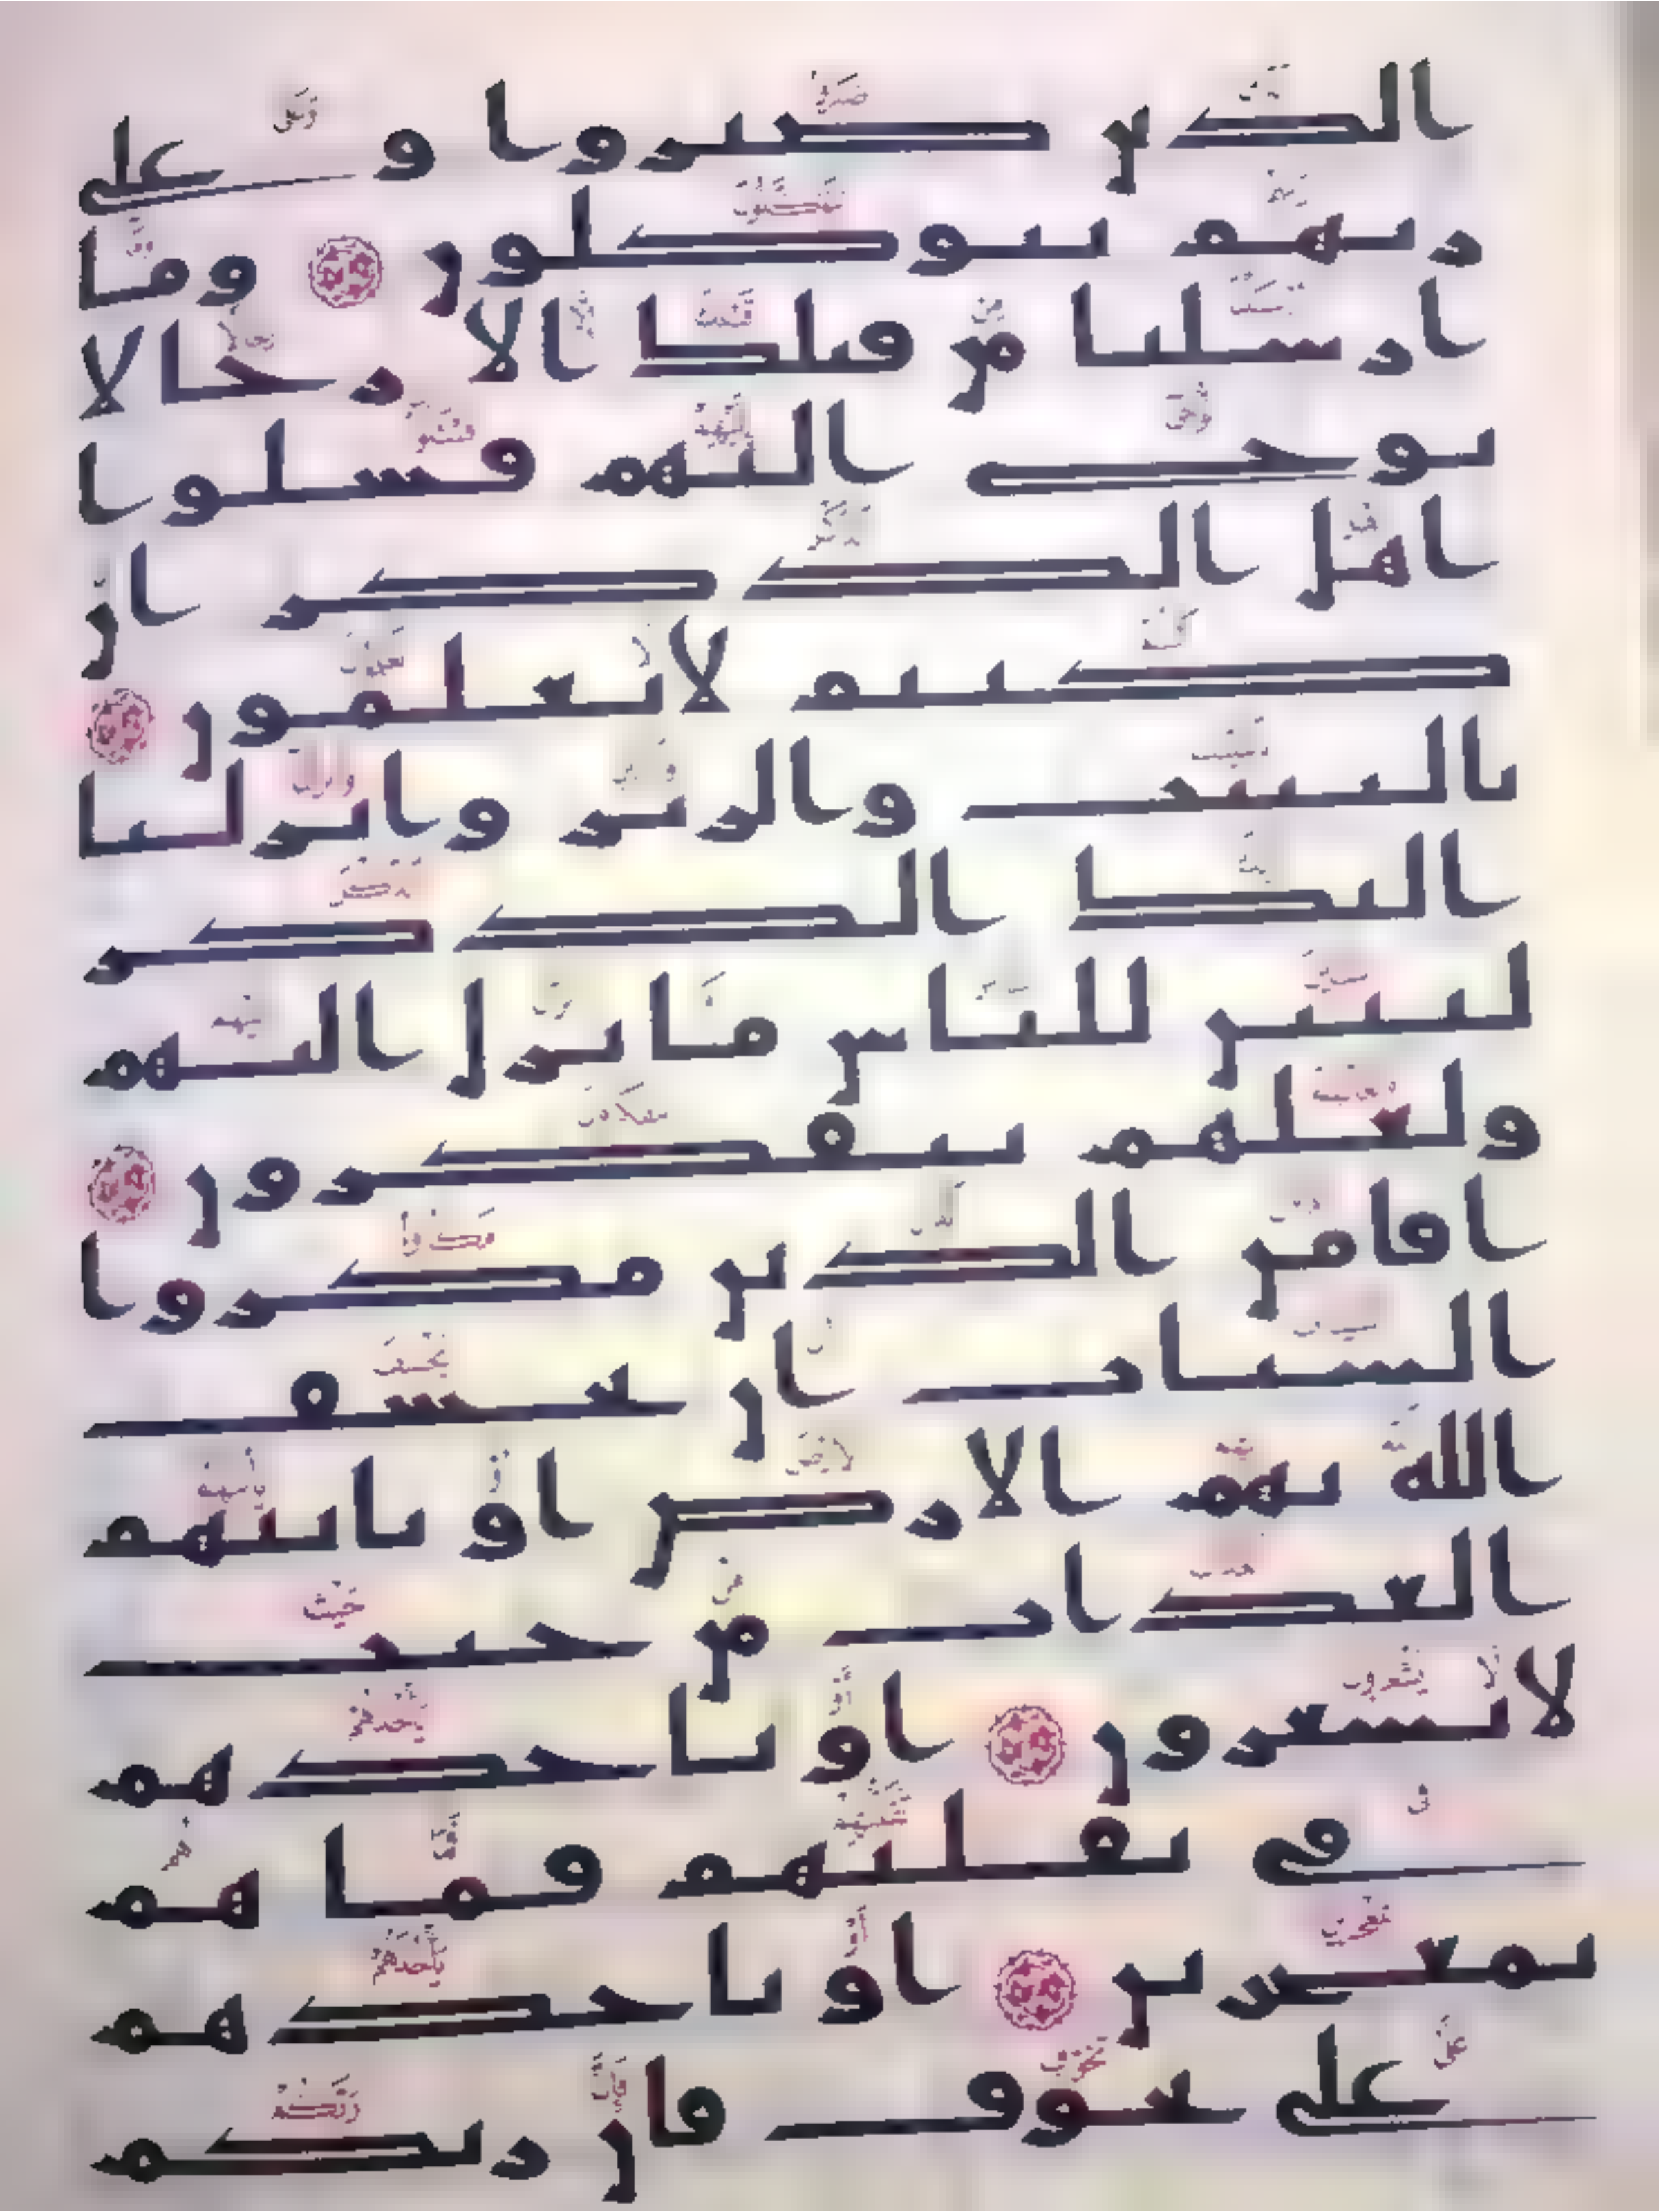 الذين صبروا وعلى
ربهم يتوكلون وما
ارسلنا من قبلك الا رجالا
يوحى اليهم فسلوا
اهل الذكر ان
كنتم لا تعلمون
بالبينت والزبر وانزلنا
اليك الذكر
لتبين للناس ما نزل اليهم
ولعلهم يتفكرون
افامن الذين مكروا
السيات ان يخسف
الله بهم الارض او ياتيهم
العذاب من حيث
لا يشعرون او ياخذهم
في تقلبهم فما هم
بمعجزين او ياخذهم
على تخوف فان ربكم